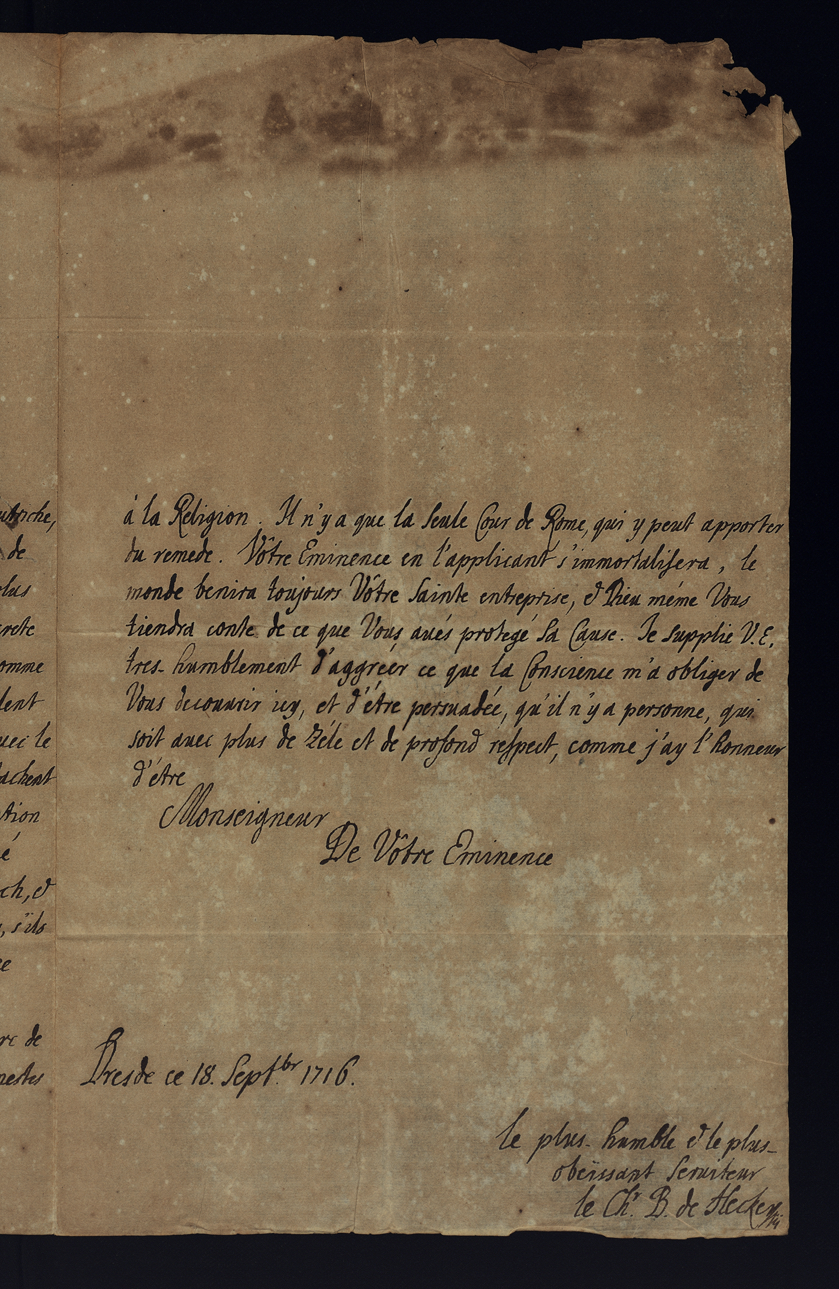 à la Religion. Il n'y a que la seule Cour de Rome, qui y peut apporter
du remede. Vôtre Eminence en l'applicant s'immortalisera, le
monde benira toujours Vôtre Sainte entreprise, & Dieu méme Vous
tiendra conte de ce que Vous avés protegé Sa Cause. Je supplie V. E.
tres-humblement d'aggréer ce que la Conscience m'a obliger de
Vous decouvrir icy, et d'étre persuadée, qu'il n'y a personne, qui
soit avec plus de zéle et de profond respect, comme j'ay l'honneur
d'étre
Monseigneur
De Vôtre Eminence
Dresde ce 18. Sept.br 1716.
le plus-humble & le plus-
obeissant Serviteur
le Chr. B. de
de
omme
vec le
é
s'ils
rc de